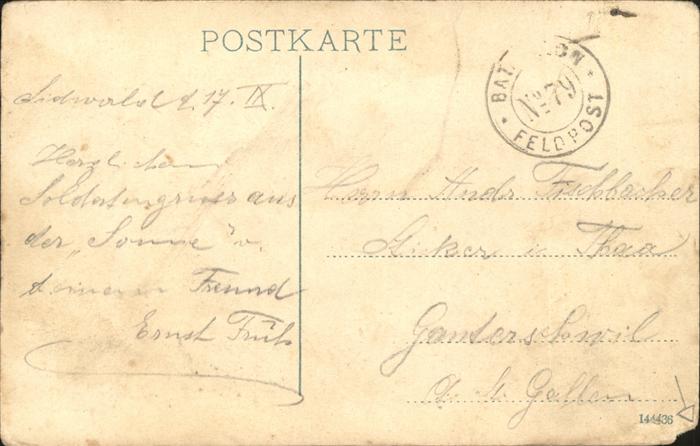 POSTKARTE
BATAILLON No 79
FELDPOST
Sidwald d. 17. IX.
Herzlichen
Soldatengruss aus
der „Sonne" v.
deinem Freund
Ernst Früh
Herrn Andr Fischbacher
Sticker i Thaa
Ganterschwil
Ct. St. Gallen
144436